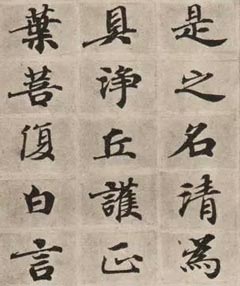 是之名请為
具淨丘護正
葉菩復白言